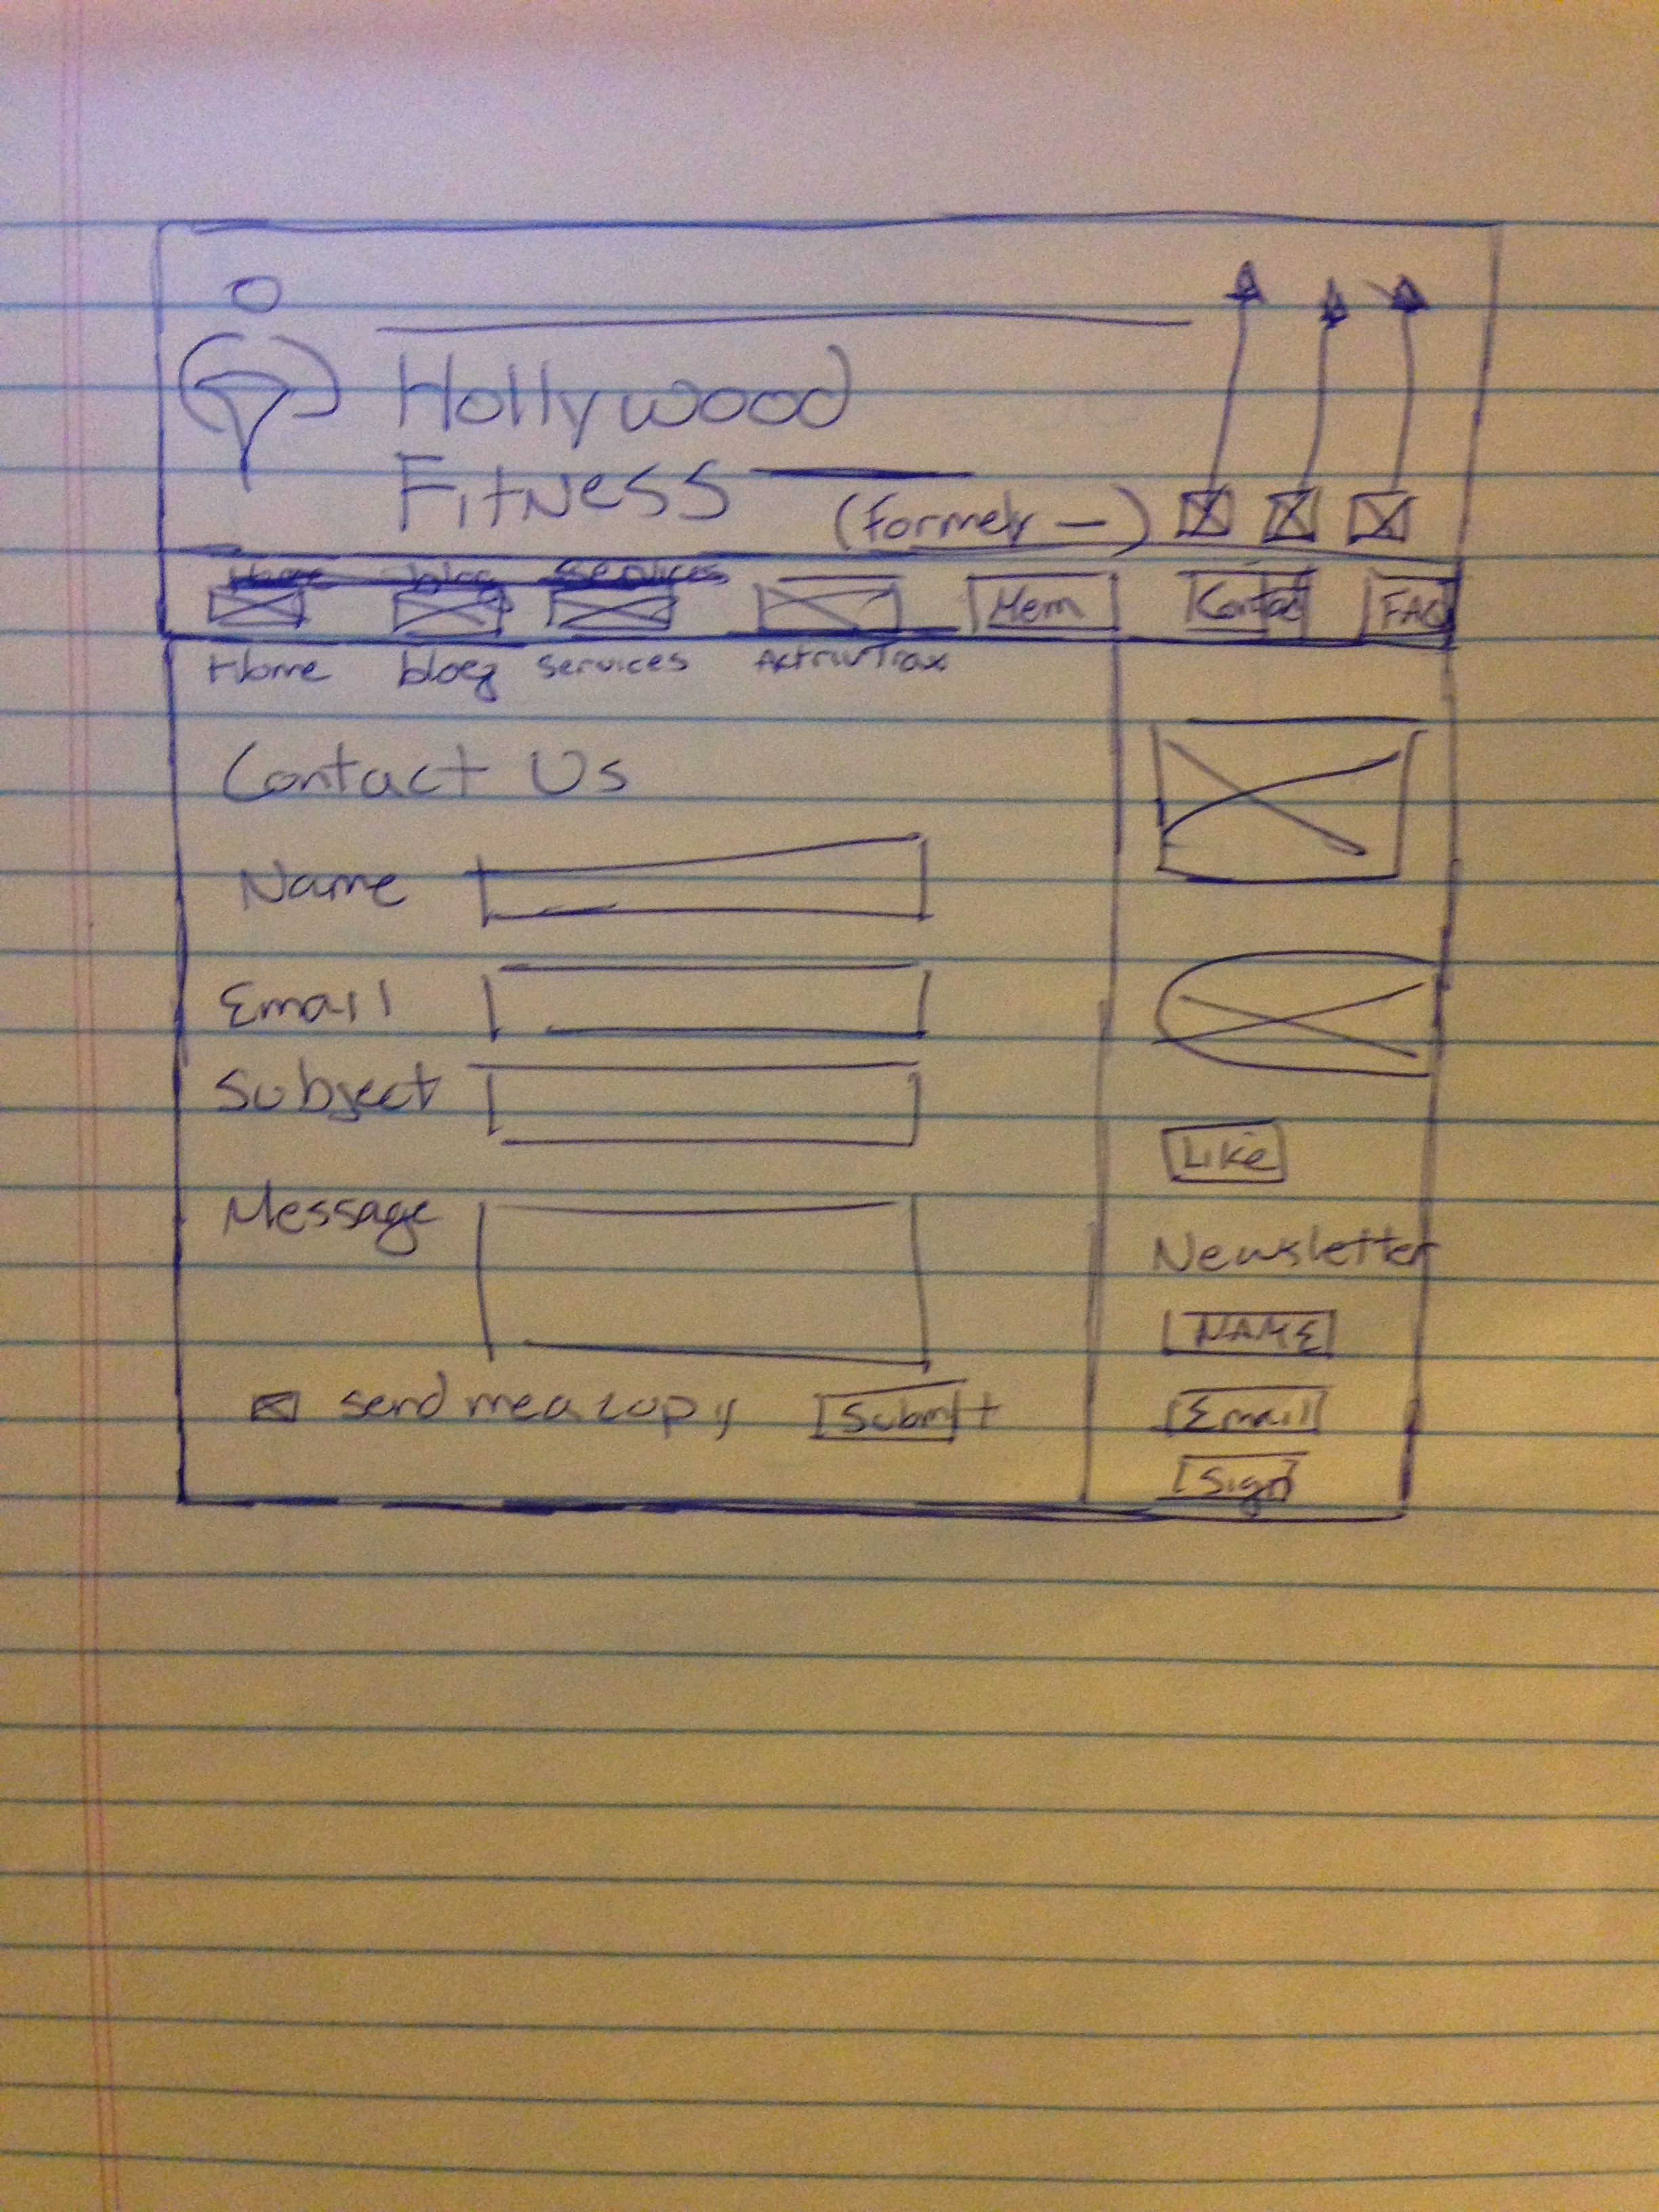 Hollywood
Fitness
(formerly —)
Home blog services
Mem Contac FAQ
Home blog services
Contact Us
Name
Email
Subject
Message
send me a copy Submit
Like
Newsletter
NAME
Email
Sign